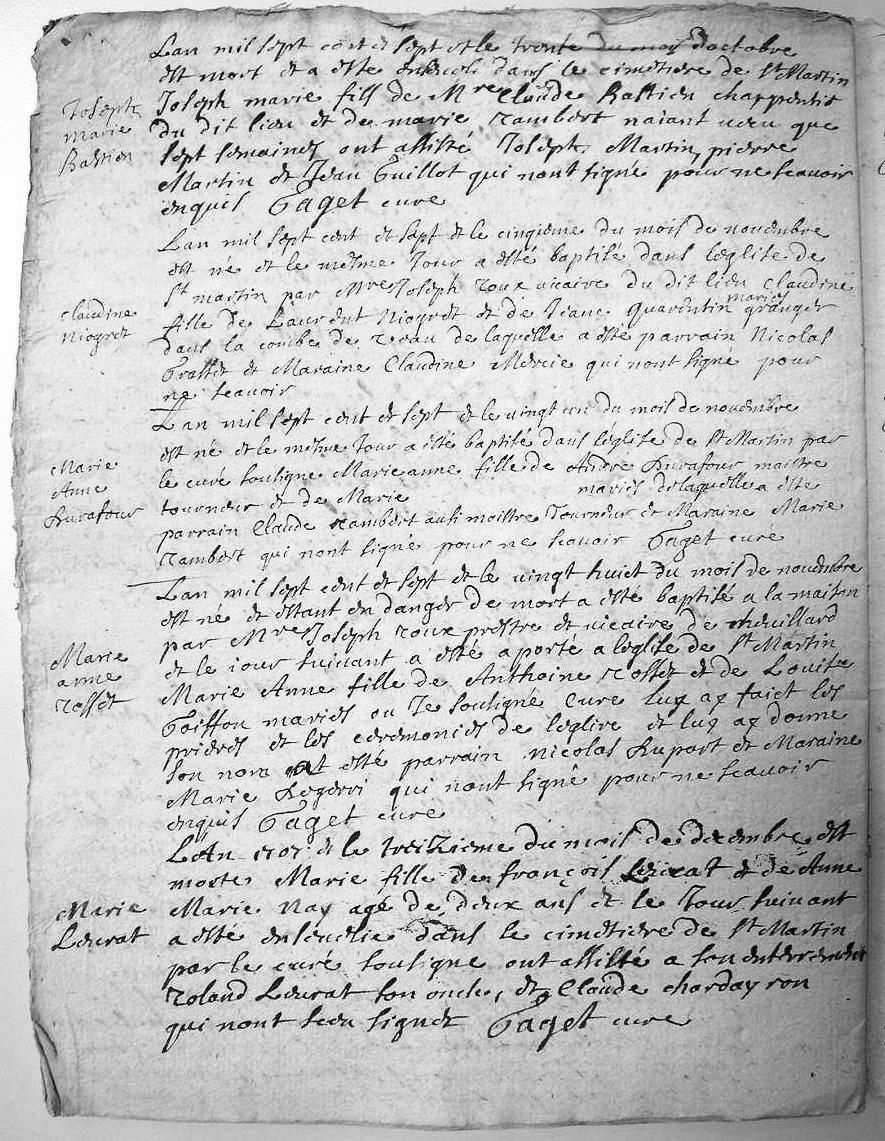 Lan mil sept cent et sept et le trente du mois doctobre
est mort et a esté enseveli dans le cimetiere de St Martin
Joseph
marie
Bastien
Joseph marie fils de Mre Claude Bastien charpentier
du dit lieu et de marie rambert naiant vecu que
sept semaines ont assisté Joseph Martin, pierre
Martin et Jean Guillot qui nont signé pour ne scavoir
enquis Gaget curé
Lan mil sept cent et sept et le cinqieme du mois de novembre
est né et le mesme Jour a esté baptisé dans leglise de
St martin par Mre Joseph roux vicaire du dit lieu Claudine
Claudine
Niogret
fille de Laurent Niogret et de Jeane Quarentin mariés granger
dans la combe de de laquelle a esté parrain Nicolas
et Maraine Claudine Mercie qui nont signé pour
ne scavoir
Lan mil sept cent et sept et le vingt un du mois de novembre
est né et le mesme Jour a esté baptisé dans leglise de St Martin par
Marie
Anne
Durafour
le curé sousigne Marie anne fille de Andre Durafour maistre
tourneur et de Marie mariés de laquelle a esté
parrain Claude rambert ausi maistre Tourneur et Maraine Marie
rambert qui nont signé pour ne scavoir Gaget curé
Lan mil sept cent et sept et le vingt huict du mois de novembre
est né et estant en danger de mort a esté baptisé a la maison
par Mre Joseph roux prestre et vicaire de chevillard
et le jour suivant a esté aporté a leglise de St Martin
Marie
anne
rosset
Marie Anne fille de Anthoine rosset et de Louise
Goiffon mariés ou Je sousigné Curé luy ay faict les
prieres et les ceremonies de leglise et luy ay donné
son nom et esté parrain nicolas Dupart et Maraine
Marie qui nont signé pour ne scavoir
enquis Gaget curé
LAn 1707 et le treizieme du mois de decembre est
morte Marie fille de françois Levrat et de Anne
Marie
Levrat
Marie Nay agé de deux ans et le Jour suivant
a esté ensevelie dans le cimetiere de St Martin
par le curé sousigne ont assisté a son enterrement
roland Levrat son oncle, et Claude chardayron
qui nont sceu signer Gaget curé